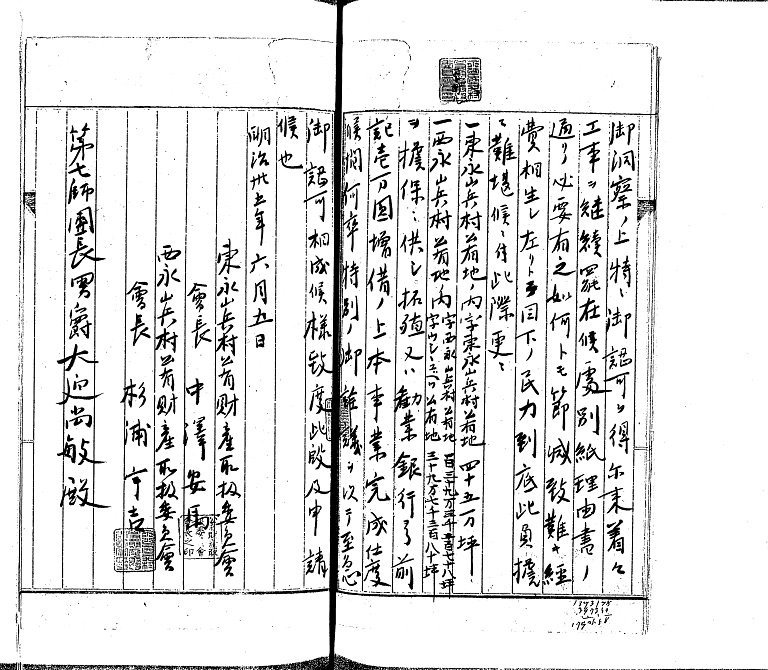 御洞察ノ上特ニ御認可ヲ得尓来着々
工事ヲ継続罷在候處別紙理由書ノ
通リ必要有之如何トモ節減致難キ経
費相生シ左リトテ目下ノ民力到底此負擔
ニ難堪候ニ付此際更ニ
一東永山兵村公有地ノ内字東永山兵村公有地 四十五万坪
一西永山兵村公有地ノ内字西永山兵村公有地
公有地 三十九万七千三百八十坪
ヲ擔保ニ供シ拓殖又ハ勧業銀行ヨリ前
記壱万圓増借ノ上本事業完成仕度
候間何卒特別ノ御詮議ヲ以テ至急
御認可相成候様致度此段及申請
候也
明治卅五年六月五日
東永山兵村公有財産取扱委員會
會長 中澤安
西永山兵村公有財産取扱委員會
會長 杉浦亨吉
第七師團長男爵大迫尚敏殿